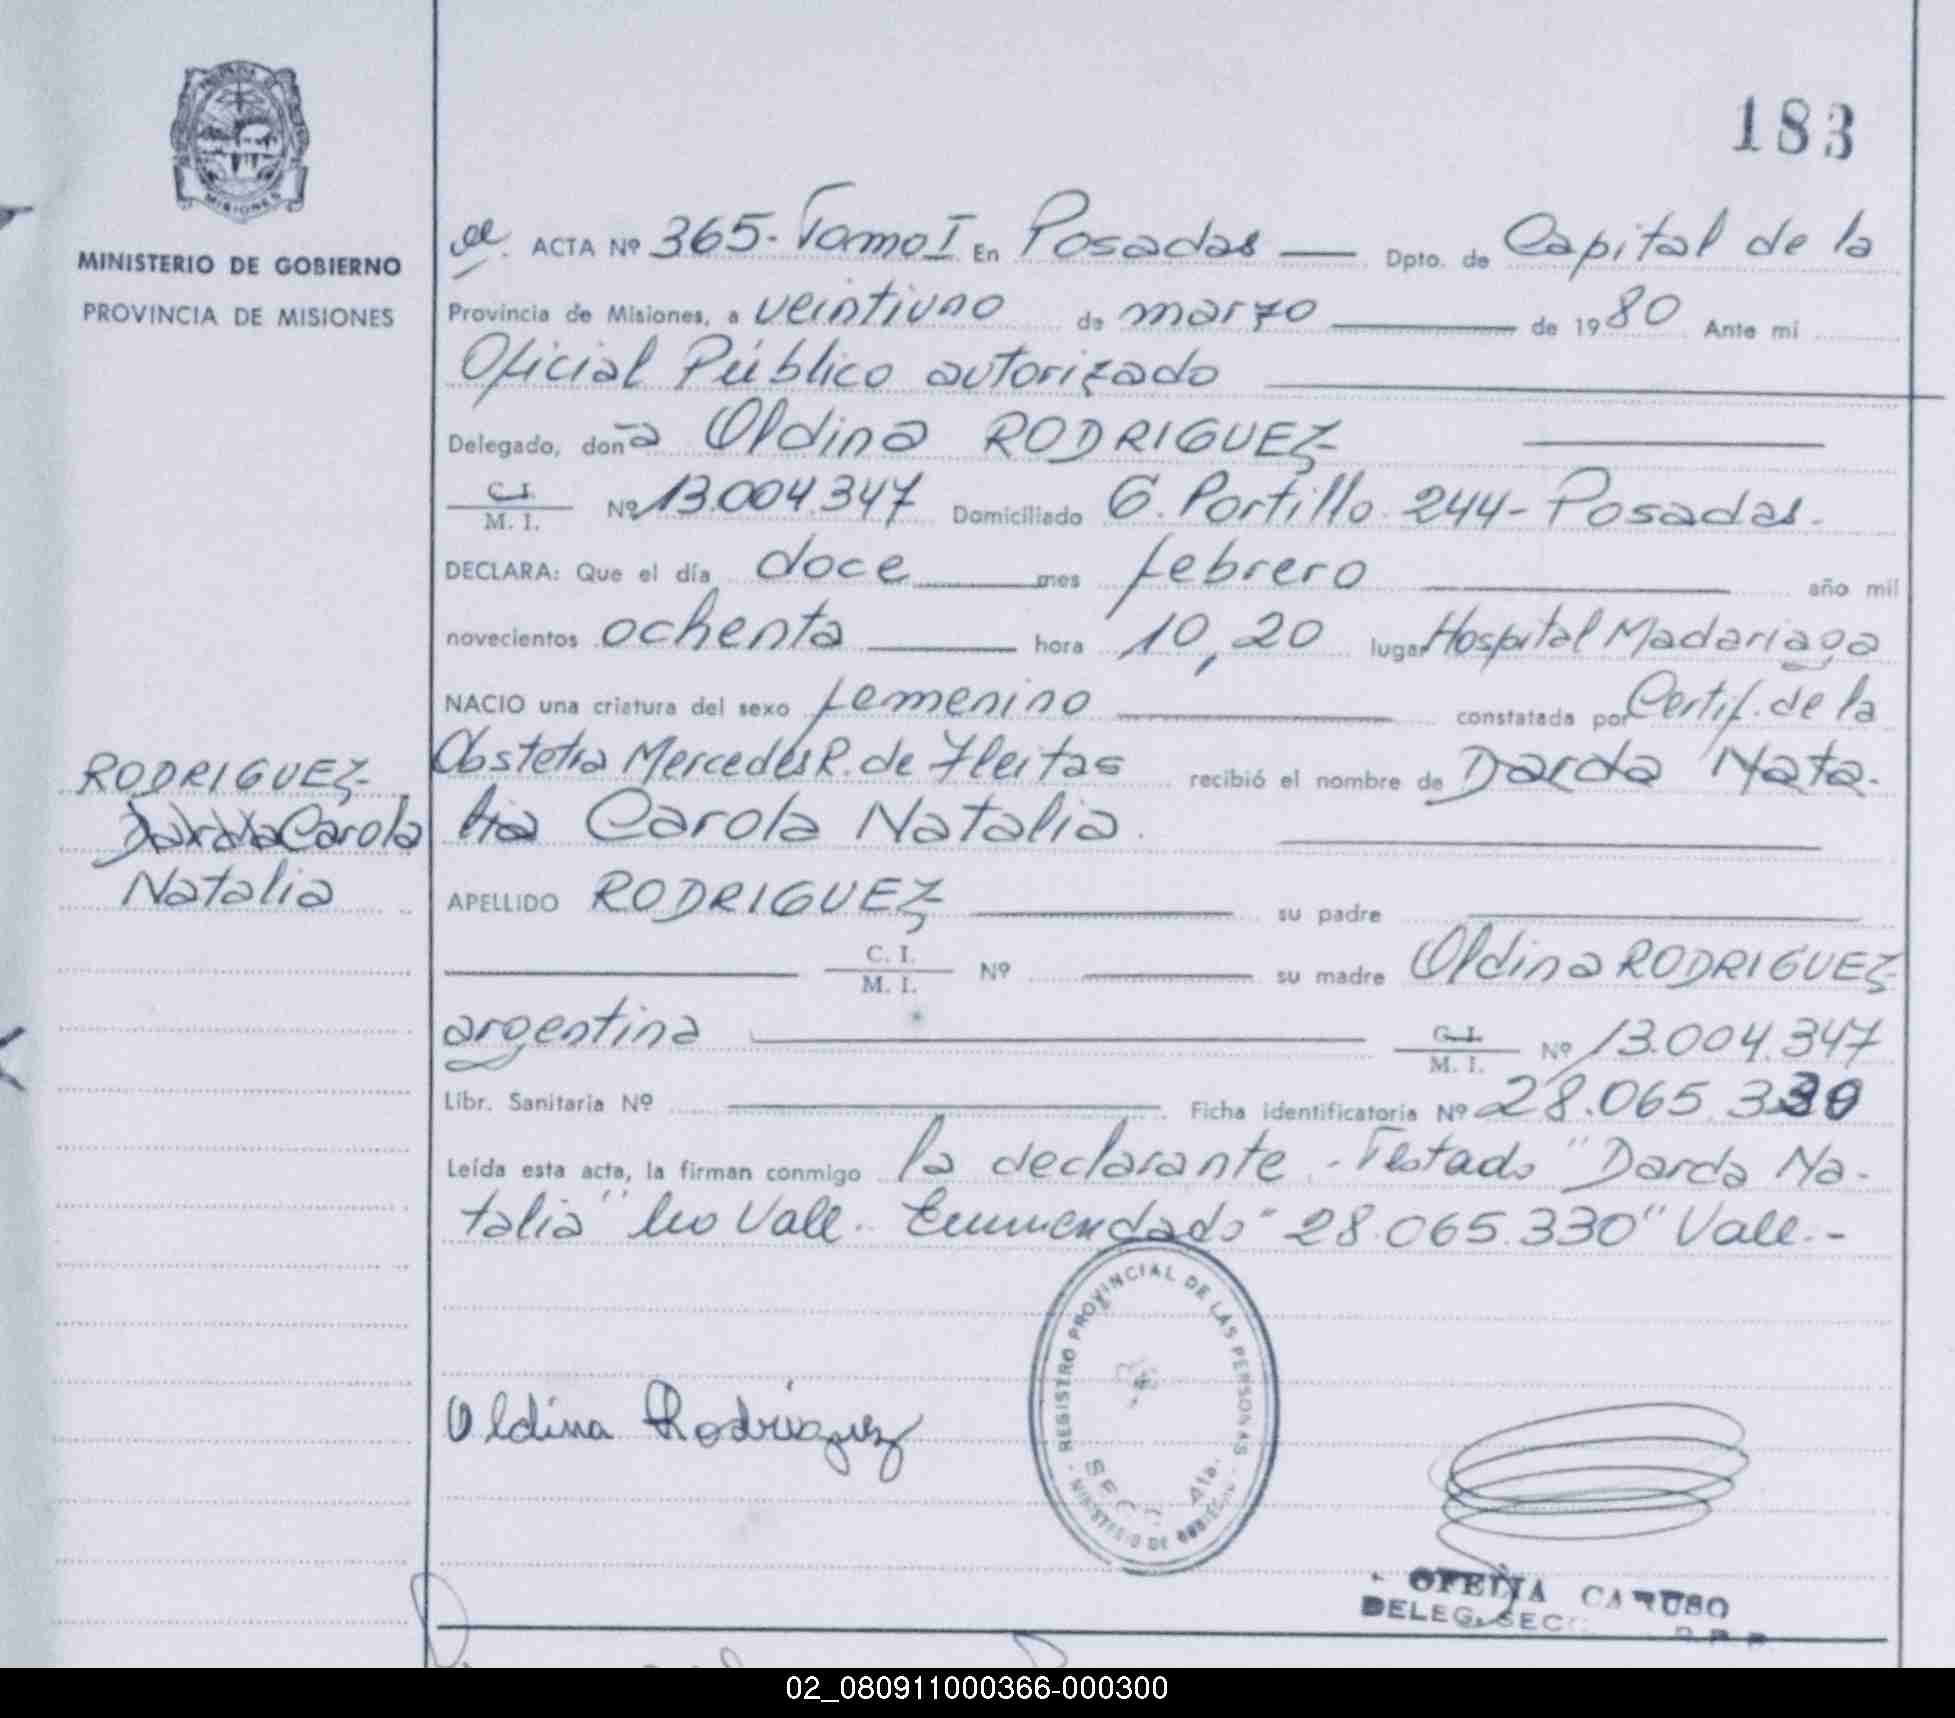 183
PROVINCIA DE
MISIONES
MINISTERIO DE GOBIERNO
PROVINCIA DE MISIONES
RODRIGUEZ
Darda Carola
Natalia
ACTA Nº 365- Tomo I En Posadas Dpto. de Capital de la
Provincia de Misiones, a veintiuno de marzo de 1980 Ante mi
Oficial Público autorizado
Delegado, donã Oldina RODRIGUEZ
C. I. M. I. Nº 13.004.347 Domiciliado G. Portillo 244- Posadas.
DECLARA: Que el día doce mes febrero año mil
novecientos ochenta hora 10,20 lugar Hospital Madariaga
NACIO una criatura del sexo femenino constatada por Certif. de la
Obstetra Mercedes R. de Fleitas recibió el nombre de Darda Nata-
lia Carola Natalia.
APELLIDO RODRIGUEZ su padre
C. I. M. I. Nº su madre Oldina RODRIGUEZ
argentina C. I. M. I. Nº 13.004.347
Libr. Sanitaria Nº Ficha identificatoria Nº 28.065.330
Leída esta acta, la firman conmigo la declarante.- Testado "Darda Na-
talia" No Vale.- Enmendado "28.065.330" Vale.-
Oldina Rodriguez
REGISTRO PROVINCIAL DE LAS PERSONAS
MINISTERIO DE GOBIERNO
OFELIA CARUSO
DELEG. SEC
02_080911000366-000300